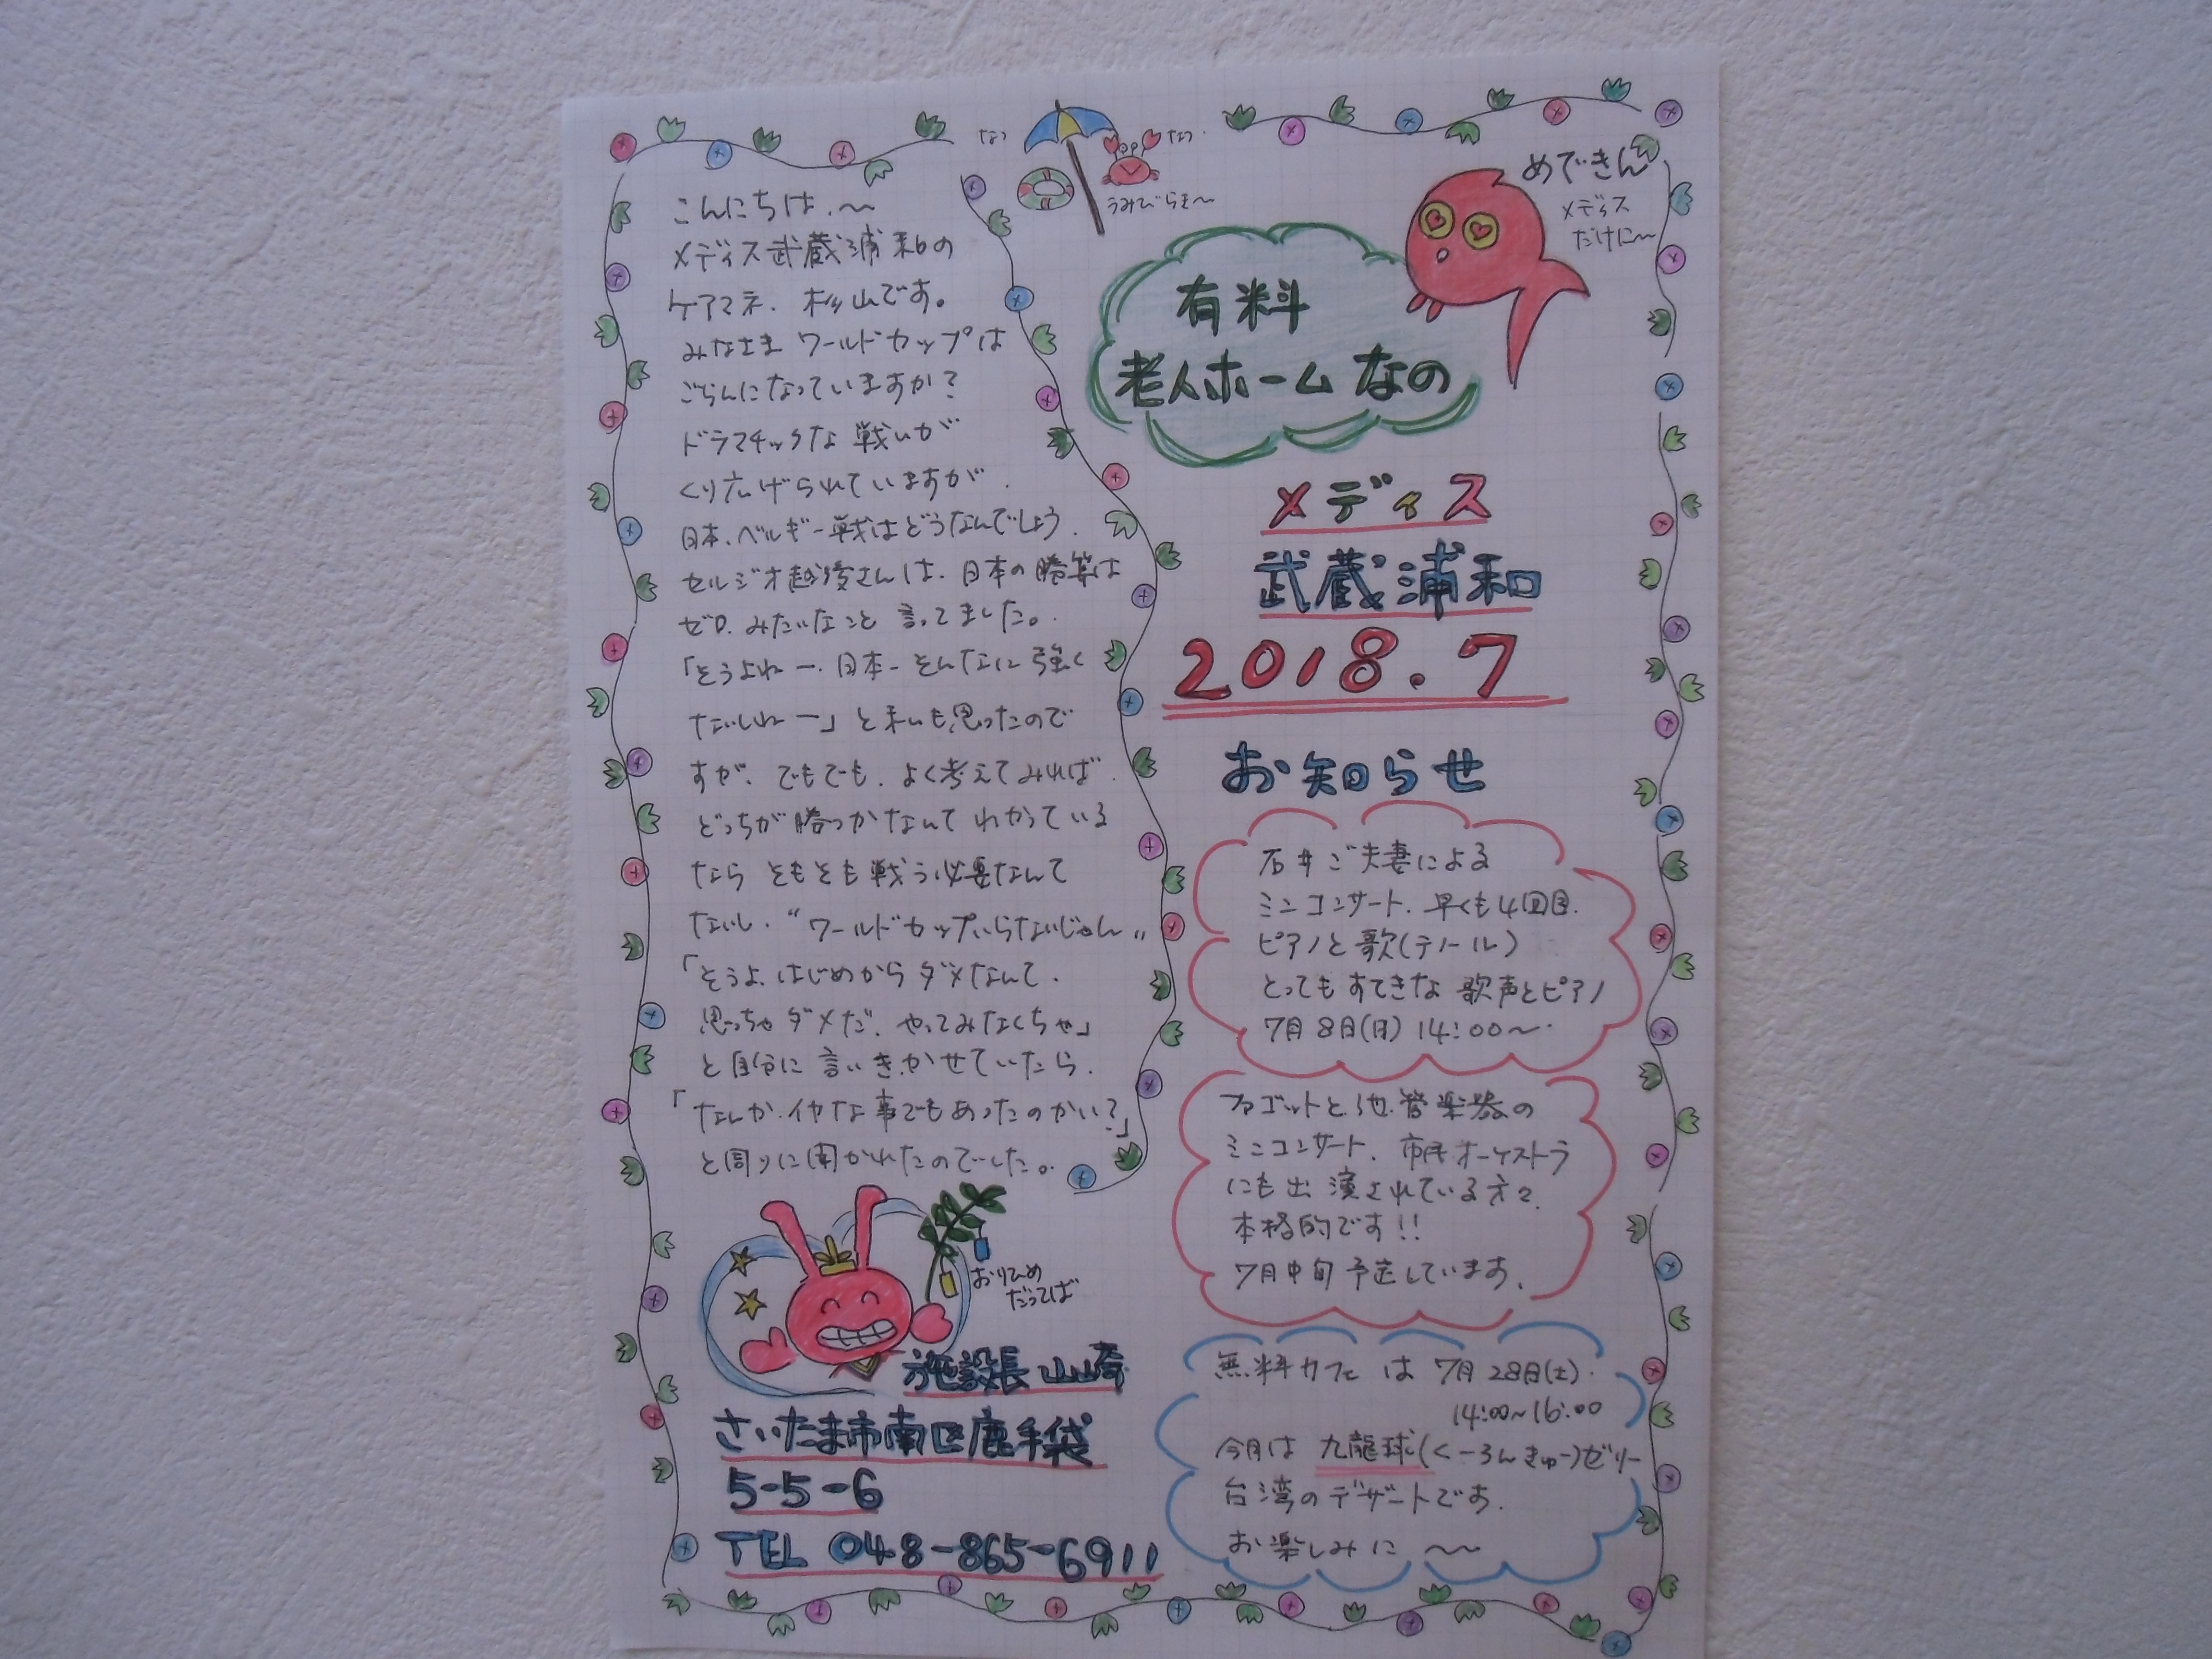 なつ
なつ
うみびらき〜
めできん
メディス
だけに〜
有料
老人ホームなの
メディス
武蔵浦和
2018.7
こんにちは、〜
メディス武蔵浦和の
ケアマネ、杉山です。
みなさま ワールドカップは
ごらんになっていますか?
ドラマチックな戦いが
くり広げられていますが、
日本、ベルギー戦はどうなんでしょう、
セルジオ越後さんは、日本の勝算は
ゼロ、みたいなこと言ってました。
「そうよねー、日本ーそんなに強く
ないしねー」と私も思ったので
すが、でもでも、よく考えてみれば、
どっちが勝つかなんてわかっている
なら ともとも戦う必要なんて
ないし、“ワールドカップいらないじゃん”
「そうよ、はじめからダメなんて、
思っちゃダメだ、やってみなくちゃ」
と自分に言いきかせていたら、
「なんか、イヤな事でもあったのかい?」
と周りに聞かれたのでした。
おりひめ
だってば
施設長 山崎
さいたま市南区鹿手袋
5-5-6
TEL 048-865-6911
お知らせ
石井ご夫妻による
ミニコンサート、早くも4回目、
ピアノと歌(テノール)
とってもすてきな歌声とピアノ
7月8日(日) 14:00〜
ファゴットと他、管楽器の
ミニコンサート、市民オーケストラ
にも出演されている方々、
本格的です!!
7月中旬予定しています、
無料カフェは7月28日(土)
14:00~16:00
今月は九龍球(くーろんきゅー)ゼリー
台湾のデザートです、
お楽しみに 〜〜